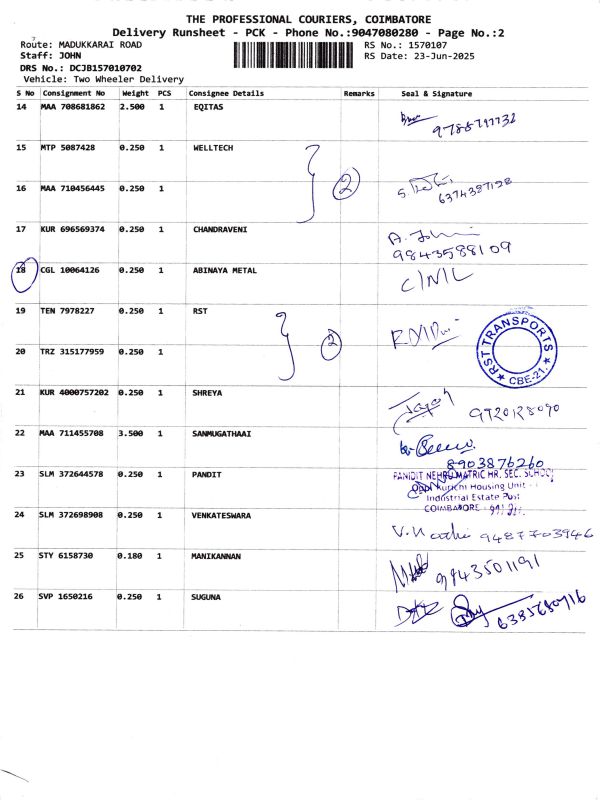 THE PROFESSIONAL COURIERS, COIMBATORE
Delivery Runsheet - PCK - Phone No.:9047080280 - Page No.:2
Route: MADUKKARAI ROAD
RS No.: 1570107
Staff: JOHN
RS Date: 23-Jun-2025
DRS No.: DCJB157010702
Vehicle: Two Wheeler Delivery
S No Consignment No Weight PCS Consignee Details Remarks Seal & Signature
14 MAA 708681862 2.500 1 EQITAS
15 MTP 5087428 0.250 1 WELLTECH
2
16 MAA 710456445 0.250 1
6374387198
17 KUR 696569374 0.250 1 CHANDRAVENI
9843588109
18 CGL 10064126 0.250 1 ABINAYA METAL C/N/L
19 TEN 7978227 0.250 1 RST
RST TRANSPORTS
CBE-21.
2
20 TRZ 315177959 0.250 1
21 KUR 4000757202 0.250 1 SHREYA
22 MAA 711455708 3.500 1 SANMUGATHAAI
8903876260
23 SLM 372644578 0.250 1 PANDIT
PANIDIT NEHRU MATRIC HR. SEC. SCHOOL
Kurichi Housing Unit
Industrial Estate Post
COIMBATORE
24 SLM 372698908 0.250 1 VENKATESWARA
9487703946
25 STY 6158730 0.180 1 MANIKANNAN
9843501191
26 SVP 1650216 0.250 1 SUGUNA
6385680716